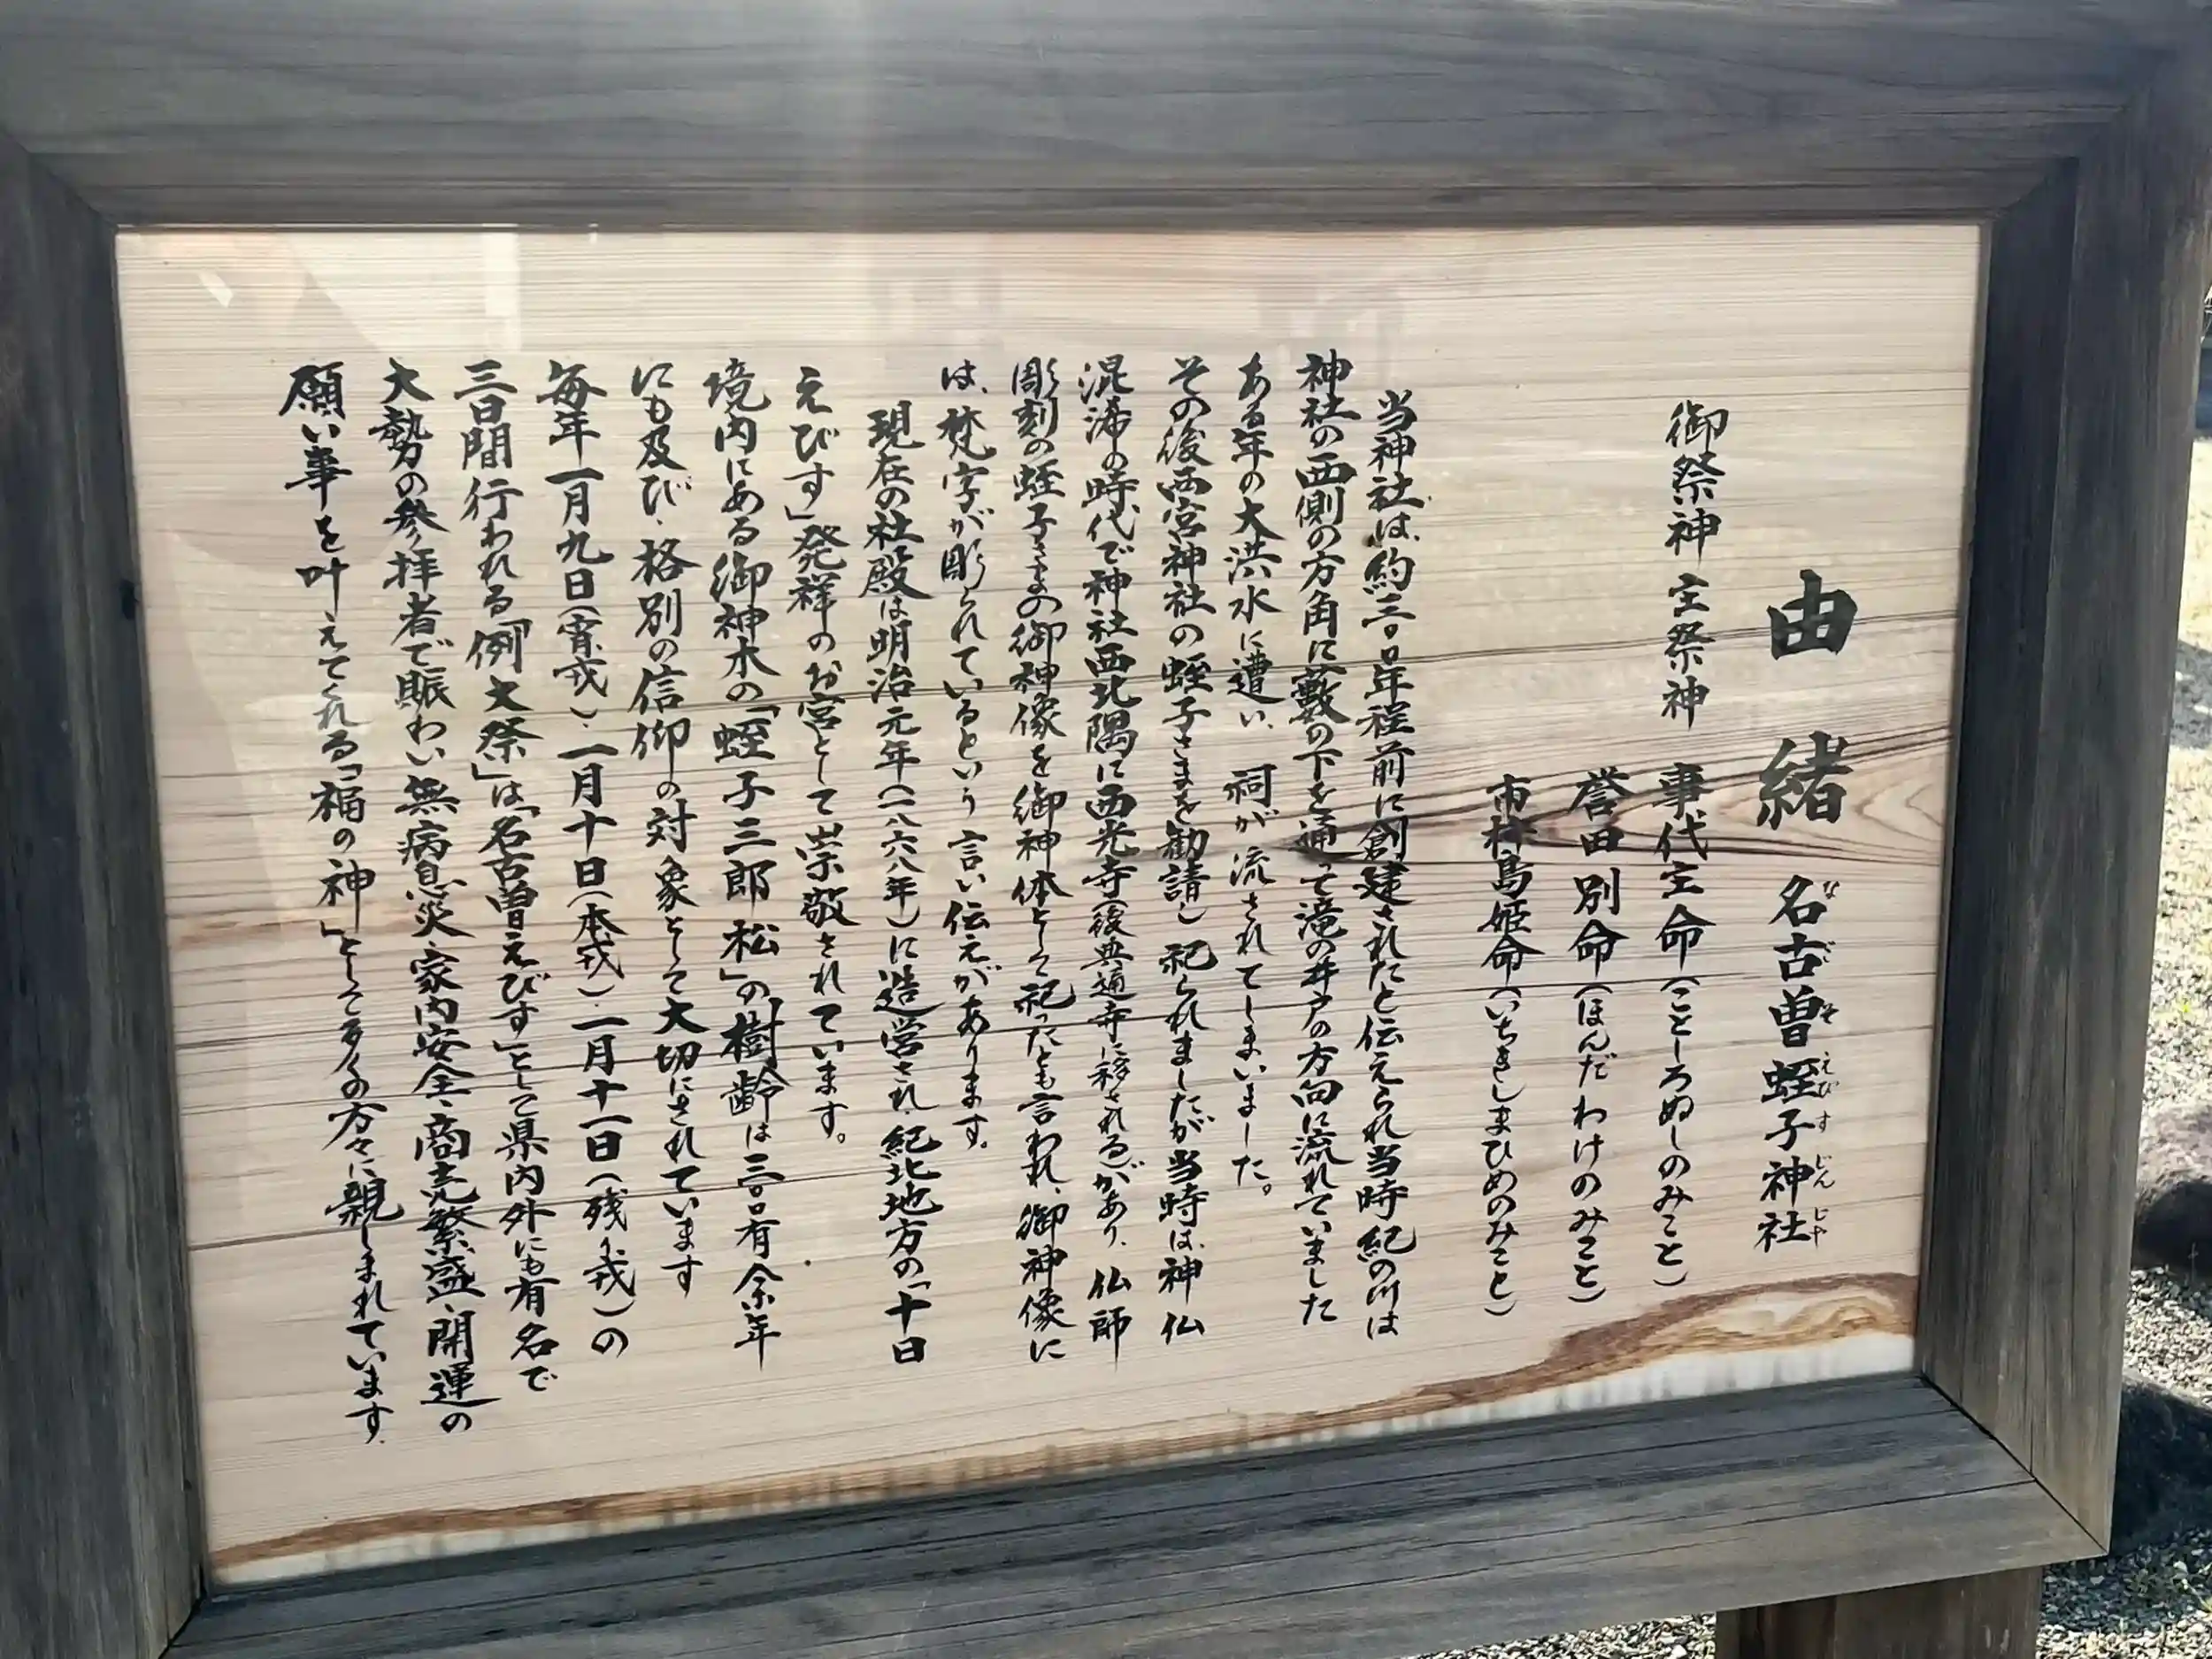 由緒 名古曽蛭子神社
なごそえびすじんじゃ
御祭神 主祭神 事代主命(ことしろぬしのみこと)
誉田別命(ほんだわけのみこと)
市杵島姫命(いちきしまひめのみこと)
当神社は、約三〇〇年程前に創建されたと伝えられ当時紀の川は
神社の西側の方角に藪の下を通って滝の井戸の方向に流れていました
ある年の大洪水に遭い、祠が流されてしまいました。
その後西宮神社の蛭子さまを勧請し祀られましたが当時は、神仏
混淆の時代で神社西北隅に西光寺(後典通寺に移される)があり、仏師
彫刻の蛭子さまの御神像を御神体として祀ったとも言われ、御神像に
は、梵字が彫られているという言い伝えがあります。
現在の社殿は明治元年(一八六八年)に造営され、紀北地方の「十日
えびす」発祥のお宮として崇敬されています。
境内にある御神木の「蛭子三郎松」の樹齢は三〇〇有余年
にも及び、格別の信仰の対象として大切にされています
毎年一月九日(宵戎)、一月十日(本戎)、一月十一日(残り戎)の
三日間行われる「例大祭」は「名古曽えびす」として県内外にも有名で
大勢の参拝者で賑わい無病息災、家内安全、商売繁盛、開運の
願い事を叶えてくれる「福の神」として多くの方々に親しまれています